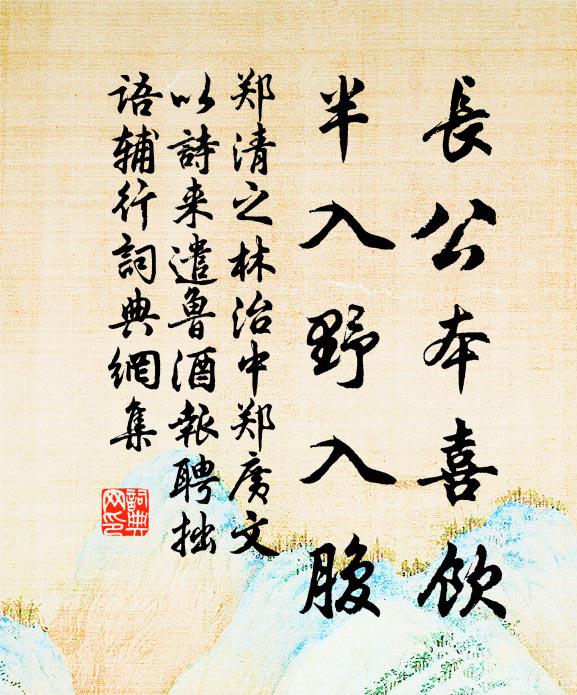 長公本喜飲
半入野入腹
郑清之林治中郑廣文
以詩来遣魯酒報聘拙
語辅行詞典網集
詞典
网印